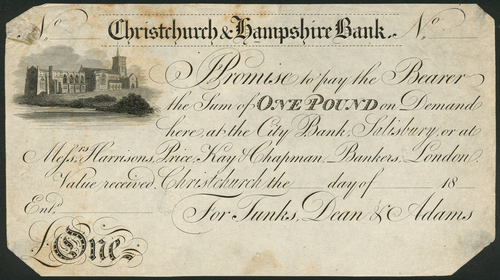 No Christchurch & Hampshire Bank. No
I Promise to pay the Bearer
the Sum of ONE POUND on Demand
here, at the City Bank, Salisbury, or at
Messrs Harrisons, Price, Kay & Chapman, Bankers, London.
Value received, Christchurch the day of 18
Entd. For Tunks, Dean & Adams
£One